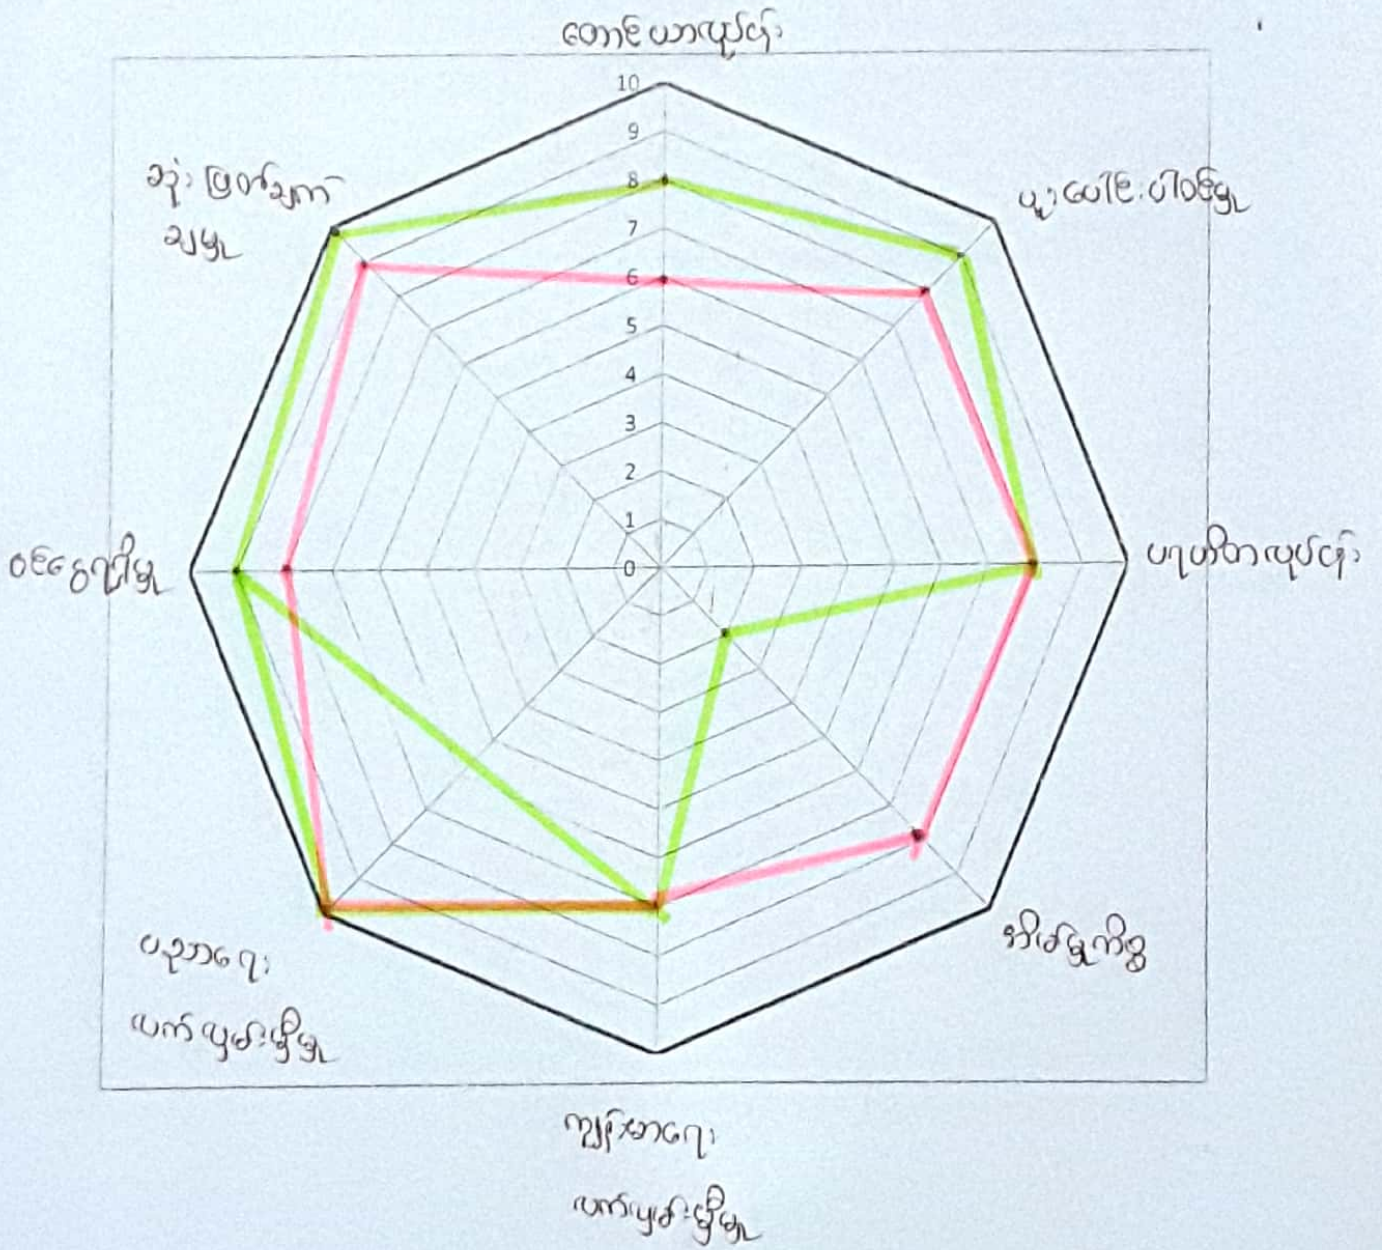 တောင်ယာလုပ်ငန်း
10
9
8
7
6
5
4
3
2
1
0
ပူးပေါင်းပါဝင်မှု
ပရဟိတလုပ်ငန်း
အိမ်မှုကိစ္စ
ကျန်းမာရေး
လက်လှမ်းမှီမှု
ပညာရေး
လက်လှမ်းမှီမှု
ဝင်ငွေရရှိမှု
ဆုံးဖြတ်ချက်
ချမှု